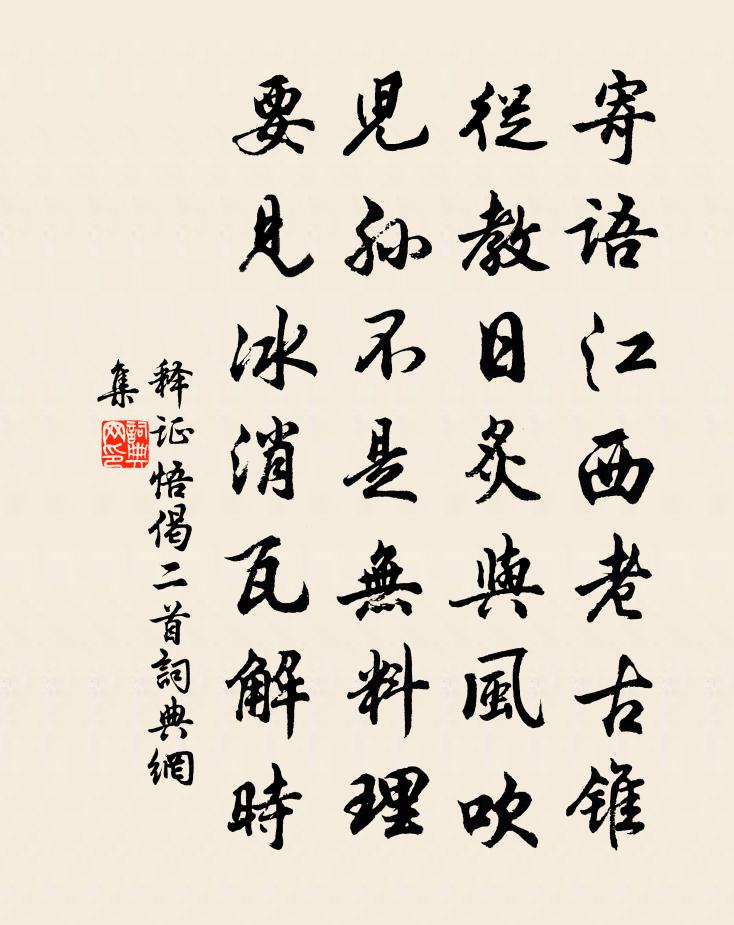 寄語江西老古錐
從教日炙與風吹
兒孫不是無料理
要見冰消瓦解時
释证悟偈二首詞典網
集
詞典網印